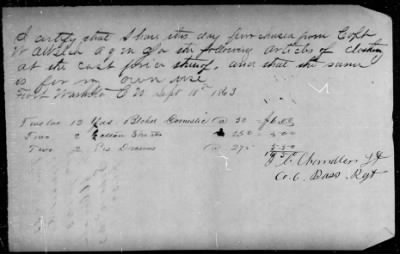 I certify that I have this day purchased from Capt
W A Glen A Q M for the following articles of clothing
at the cost price thereof, and that the same
is for my own use
Fort Washita C N Sept 10th 1863
Twelve 12 Yds Domestic @ 50 $6.00
Two 2 Cotton Shirts @ 250 5.00
Two 2 Prs Drawers @ 275 5.50
T. C. Chandler Lt
Co. C. Bass Regt